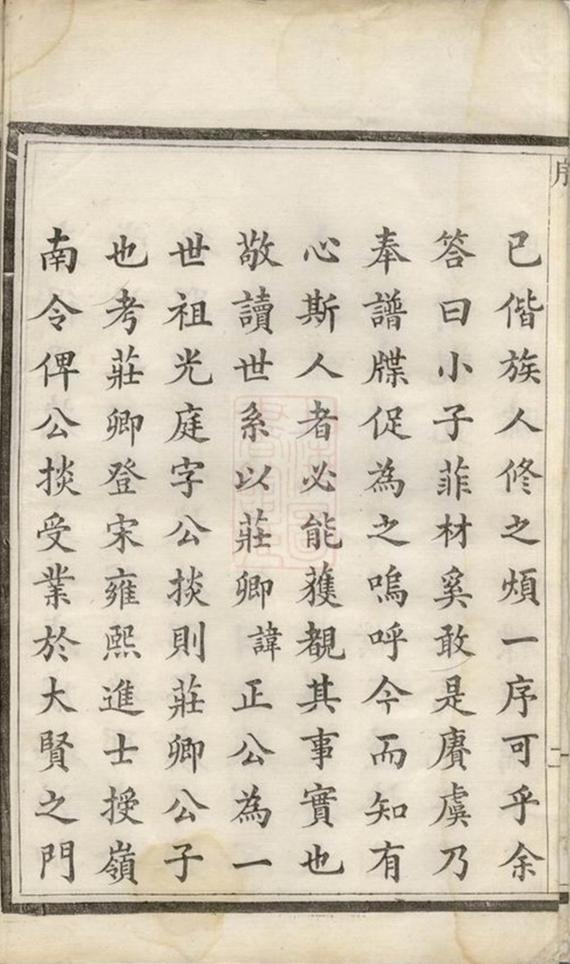 已偕族人修之煩一序可乎余
答曰小子菲材奚敢是賡虞乃
奉譜牒促為之嗚呼今而知有
心斯人者必能獲覩其事實也
敬讀世系以莊卿諱正公為一
世祖光庭字公掞則莊卿公子
也考莊卿登宋雍熙進士授嶺
南令俾公掞受業於大賢之門
序
二